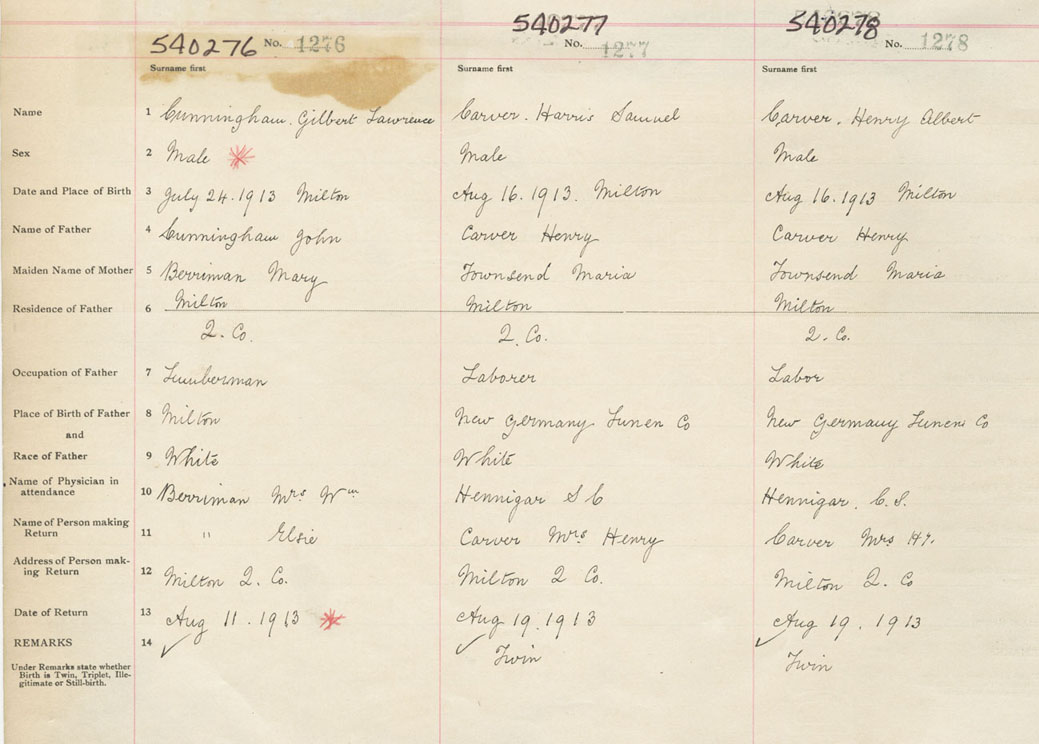 540276 No. 1276 540277 No. 1277 540278 No. 1278
Surname first Surname first Surname first
Name 1 Cunningham. Gilbert Lawrence Carver. Harris Samuel Carver. Henry Albert
Sex 2 Male Male Male
Date and Place of Birth 3 July 24. 1913 Milton Aug 16. 1913. Milton Aug 16. 1913 Milton
Name of Father 4 Cunningham John Carver Henry Carver Henry
Maiden Name of Mother 5 Berriman Mary Townsend Maria Townsend Maria
Residence of Father 6 Milton Milton Milton
Q. Co. Q. Co. Q. Co.
Occupation of Father 7 Lumberman Laborer Labor
Place of Birth of Father 8 Milton New Germany Lunen Co New Germany Lunen Co
and
Race of Father 9 White White White
Name of Physician in
attendance 10 Berriman Mrs Wm Hennigar S C Hennigar. C. S.
Name of Person making
Return 11 " Elsie Carver Mrs Henry Carver Mrs Hy.
Address of Person mak-
ing Return 12 Milton Q. Co. Milton Q Co. Milton Q. Co
Date of Return 13 Aug 11. 1913 Aug 19. 1913 Aug 19. 1913
REMARKS 14 Twin Twin
Under Remarks state whether
Birth is Twin, Triplet, Ille-
gitimate or Still-birth.